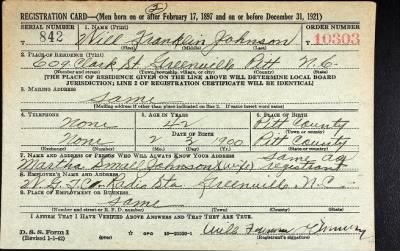 REGISTRATION CARD—(Men born on or after February 17, 1897 and on or before December 31, 1921)
SERIAL NUMBER 1. NAME (Print) ORDER NUMBER
842 Will Franklin Johnson 10303
(First) (Middle) (Last)
2. PLACE OF RESIDENCE (Print)
609 Clark St. Greenville Pitt N.C.
(Number and street) (Town, township, village, or city) (County) (State)
[THE PLACE OF RESIDENCE GIVEN ON THE LINE ABOVE WILL DETERMINE LOCAL BOARD
JURISDICTION; LINE 2 OF REGISTRATION CERTIFICATE WILL BE IDENTICAL]
3. MAILING ADDRESS
Same
(Mailing address if other than place indicated on line 2. If same insert word same)
4. TELEPHONE 5. AGE IN YEARS 6. PLACE OF BIRTH
None 42 Pitt County
DATE OF BIRTH (Town or county)
None 2 3 1900 Pitt County
(Exchange) (Number) (Mo.) (Day) (Yr.) (State or country)
7. NAME AND ADDRESS OF PERSON WHO WILL ALWAYS KNOW YOUR ADDRESS
Martha Johnson (wife) Same as Registrant
8. EMPLOYER'S NAME AND ADDRESS
Radio Sta Greenville N.C.
9. PLACE OF EMPLOYMENT OR BUSINESS
Same
(Number and street or R. F. D. number) (Town) (County) (State)
I AFFIRM THAT I HAVE VERIFIED ABOVE ANSWERS AND THAT THEY ARE TRUE.
D. S. S. Form 1
(Revised 1-1-42) GPO (Registrant's signature)